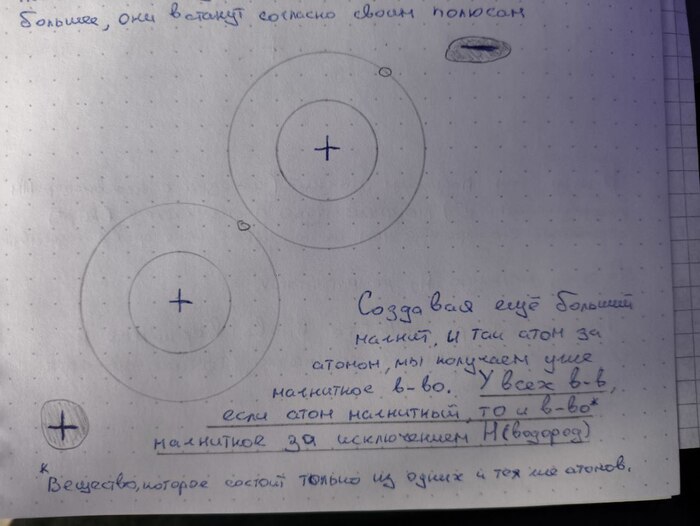 большее, они встанут согласно своим полюсам
−
+
+
Создавая ещё больший
магнит, и так атом за
атомом, мы получаем уже
магнитное в-во. У всех в-в,
если атом магнитный, то и в-во*
магнитное за исключением H(водород)
+
* Вещество, которое состоит только из одних и тех же атомов.